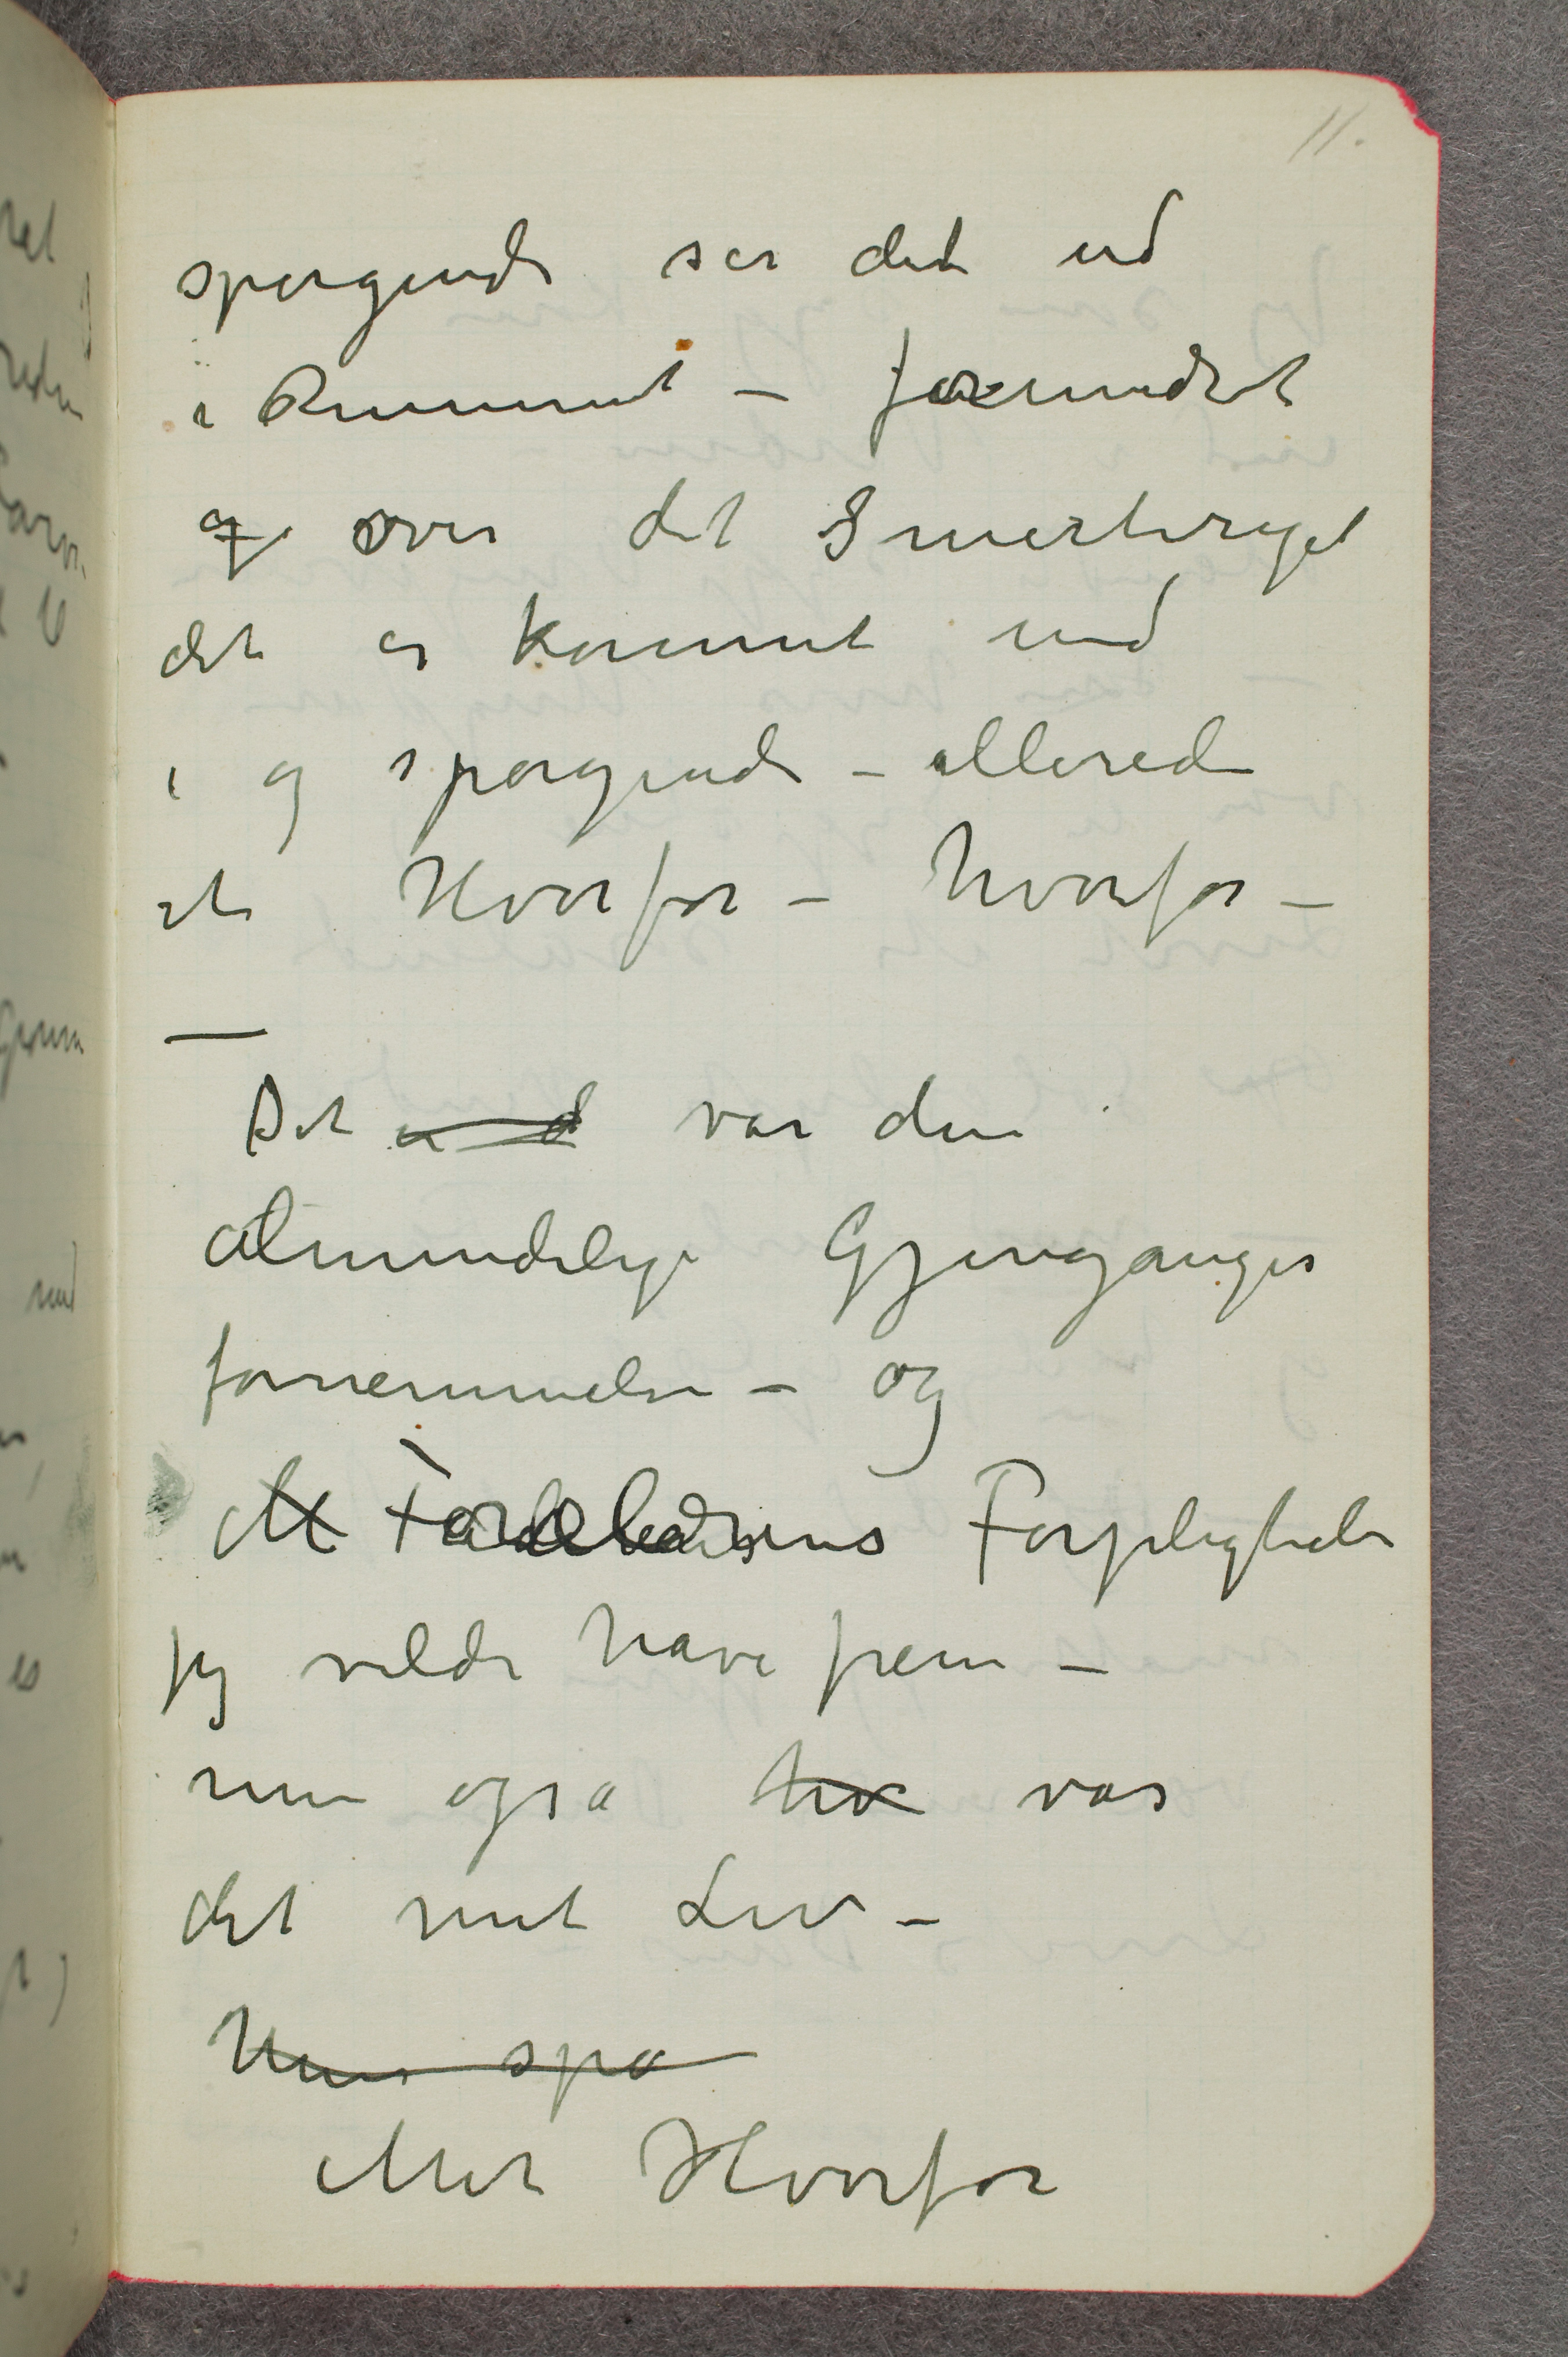 11.
spørgende ser det ud
i Rummet – forundret
og over det Smerteriget
det er kommet ind
i og spørgende – allerede
et Hvorfor – hvorfor –
—
Det e d var den
almindelige Gjenganger
fornemmelse – og
M Forældrenes Forpligtelse
jeg vilde have frem –
men også hv var
det mit Liv –
Hun spø
Mit Hvorfor